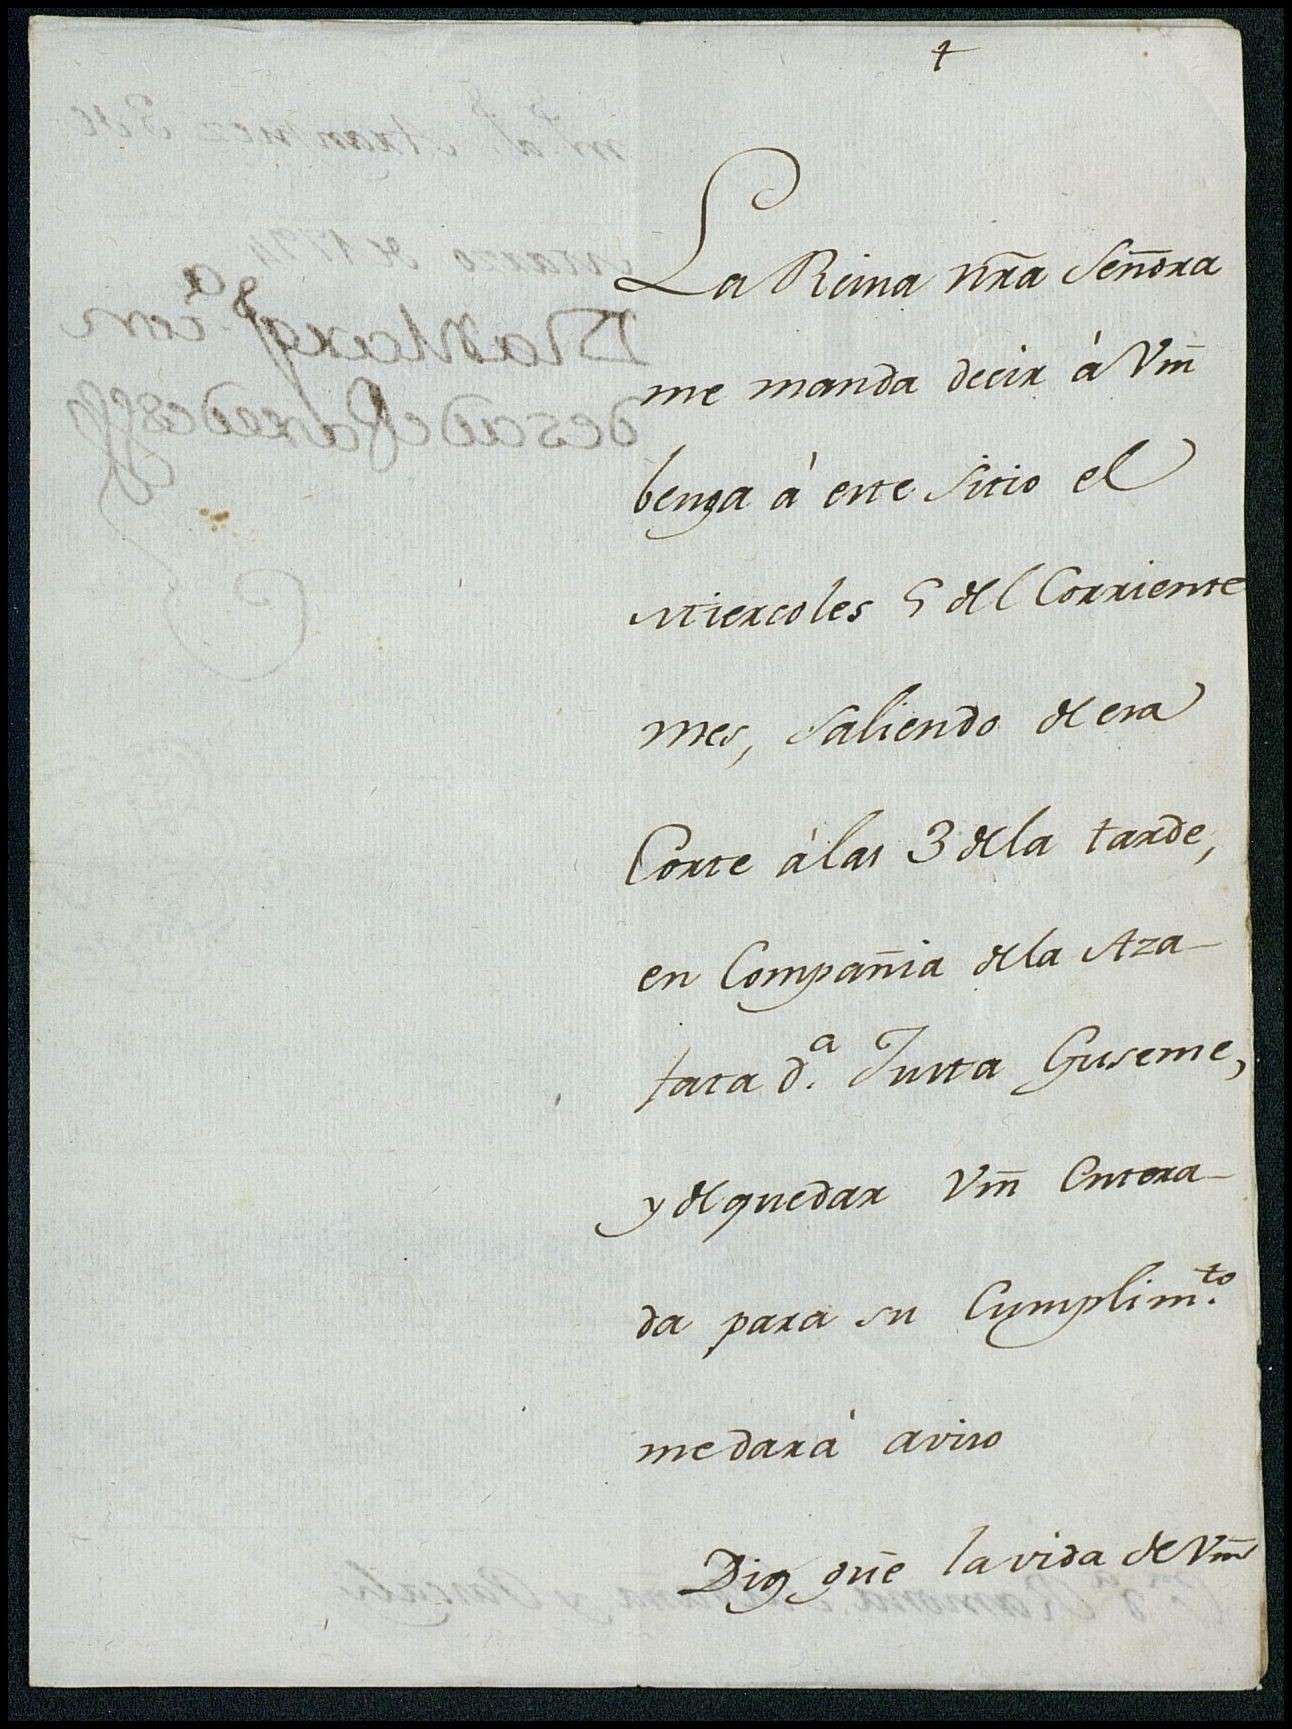 La Reina nr̃a Señora
me manda decir á Vm̃
benga á este Sitio el
Miercoles 5 del Corriente
mes, saliendo de esa
Corte á las 3 de la tarde,
en Compañia de la Aza-
fata d.ª Justa Guseme,
y de quedar Vm̃ Entera-
da para su Cumplim.to
me dará aviso
Dios gũe la vida de Vm̃